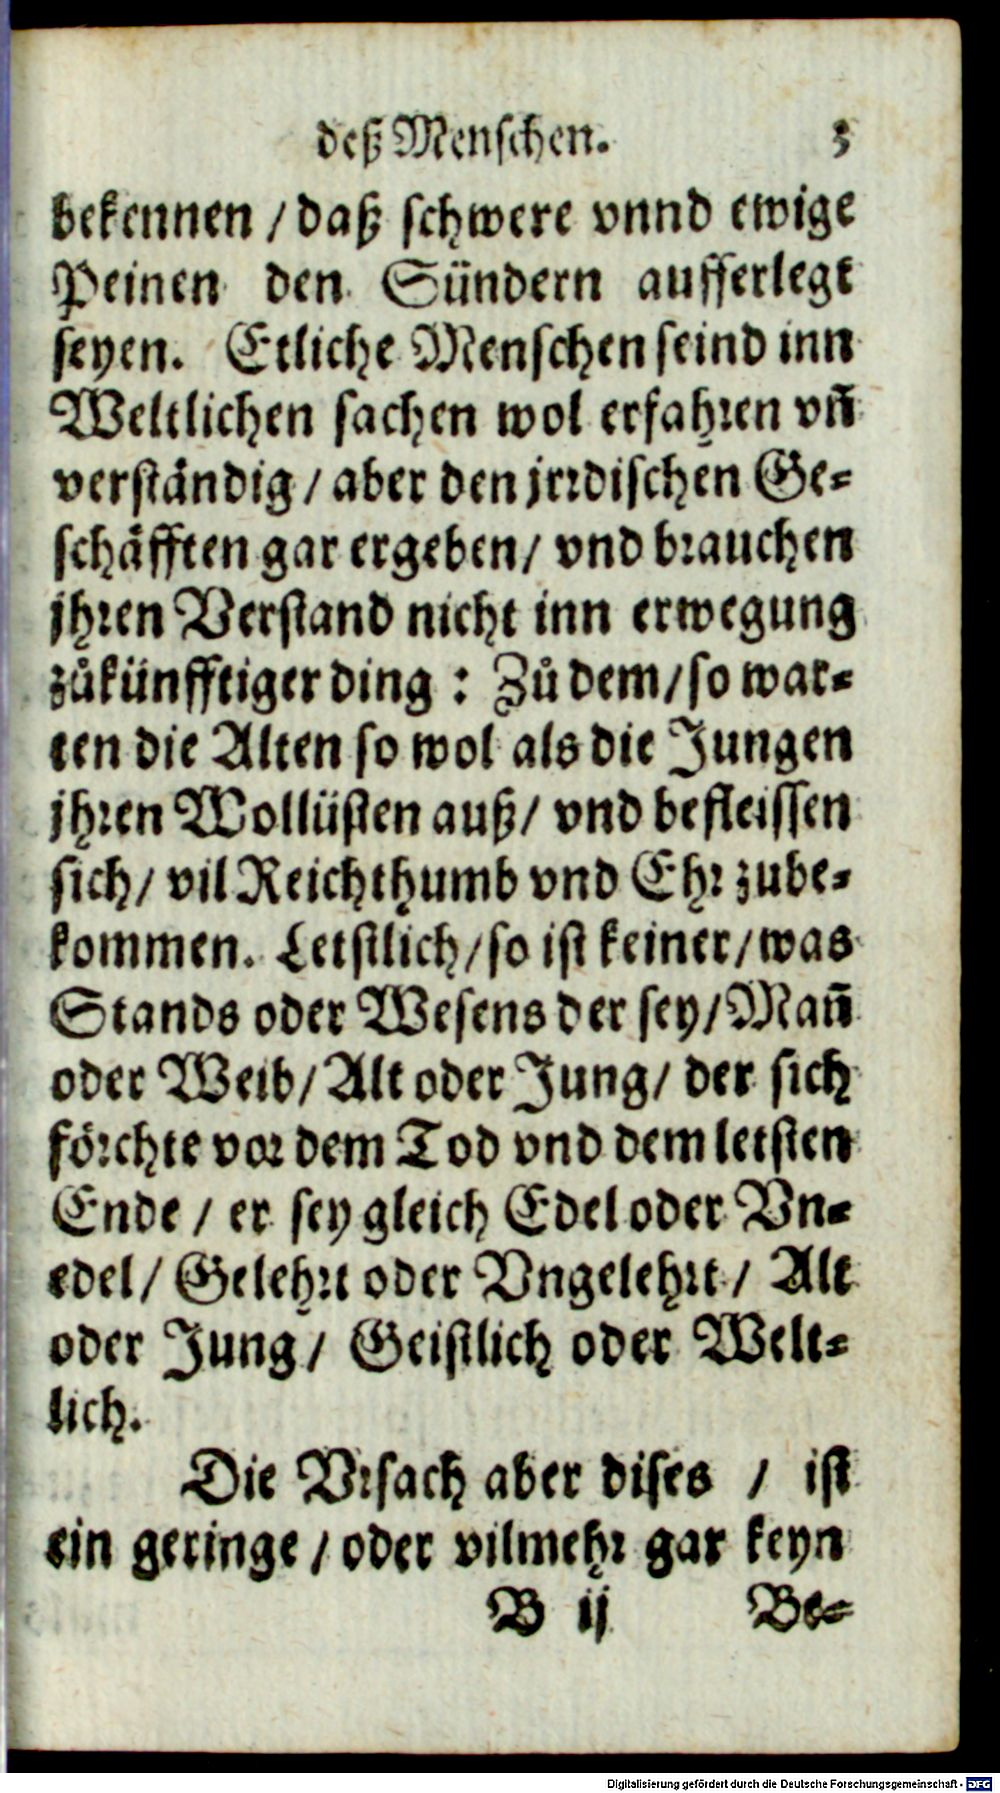 deß Menschen. 3
bekennen / daß schwere vnnd ewige
Peinen den Sündern aufferlegt
seyen. Etliche Menschen seind inn
Weltlichen sachen wol erfahren vñ
verständig / aber den jrrdischen Ge-
schäfften gar ergeben / vnd brauchen
jhren Verstand nicht inn erwegung
zůkünfftiger ding : Zů dem / so war-
ten die Alten so wol als die Jungen
jhren Wollüsten auß / vnd befleissen
sich / vil Reichthumb vnd Ehr zube-
kommen. Letstlich / so ist keiner / was
Stands oder Wesens der sey / Mañ
oder Weib / Alt oder Jung / der sich
förchte vor dem Tod vnd dem letsten
Ende / er sey gleich Edel oder Vn-
edel / Gelehrt oder Vngelehrt / Alt
oder Jung / Geistlich oder Welt-
lich.
Die Vrsach aber dises / ist
ein geringe / oder vilmehr gar keyn
B ij Be-
Digitalisierung gefördert durch die Deutsche Forschungsgemeinschaft - DFG